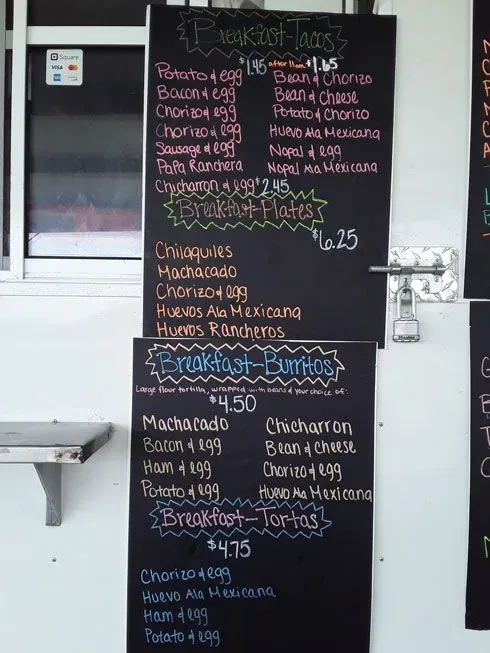 Square
VISA
Breakfast-Tacos
$1.45 after 11am $1.65
Potato & egg
Bacon & egg
Chorizo & egg
Chorizo & egg
Sausage & egg
Papa Ranchera
Chicharron & egg $2.45
Bean & Chorizo
Bean & Cheese
Potato & Chorizo
Huevo Ala Mexicana
Nopal & egg
Nopal Ala Mexicana
Breakfast-Plates
$6.25
Chilaquiles
Machacado
Chorizo & egg
Huevos Ala Mexicana
Huevos Rancheros
Breakfast-Burritos
Large flour tortilla, wrapped with beans & your choice of:
$4.50
Machacado
Bacon & egg
Ham & egg
Potato & egg
Chicharron
Bean & Cheese
Chorizo & egg
Huevo Ala Mexicana
Breakfast-Tortas
$4.75
Chorizo & egg
Huevo Ala Mexicana
Ham & egg
Potato & egg